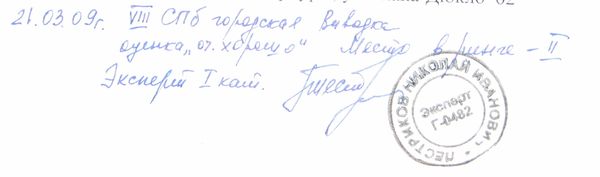 Дюкло 02
21.03.09г. VIII СПб городская Выводка
оценка „оч. хорошо" Место в ринге – II
Эксперт I кат.
ПЕСТРИКОВ НИКОЛАЙ ИВАНОВИЧ
Эксперт
Г-0482